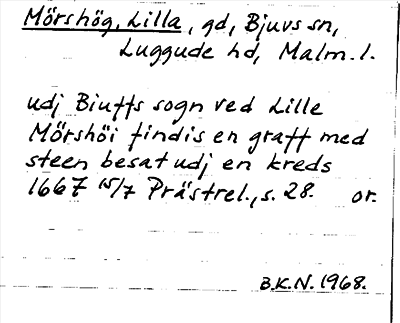 Mörshög, Lilla, gd, Bjuvs sn,
Luggude hd, Malm. l.
udj Biuffs sogn ved Lille
Mörshöi findis en graff med
steen besat udj en kreds
1667 15/7 Prästrel., s. 28. or.
B.K.N. 1968.